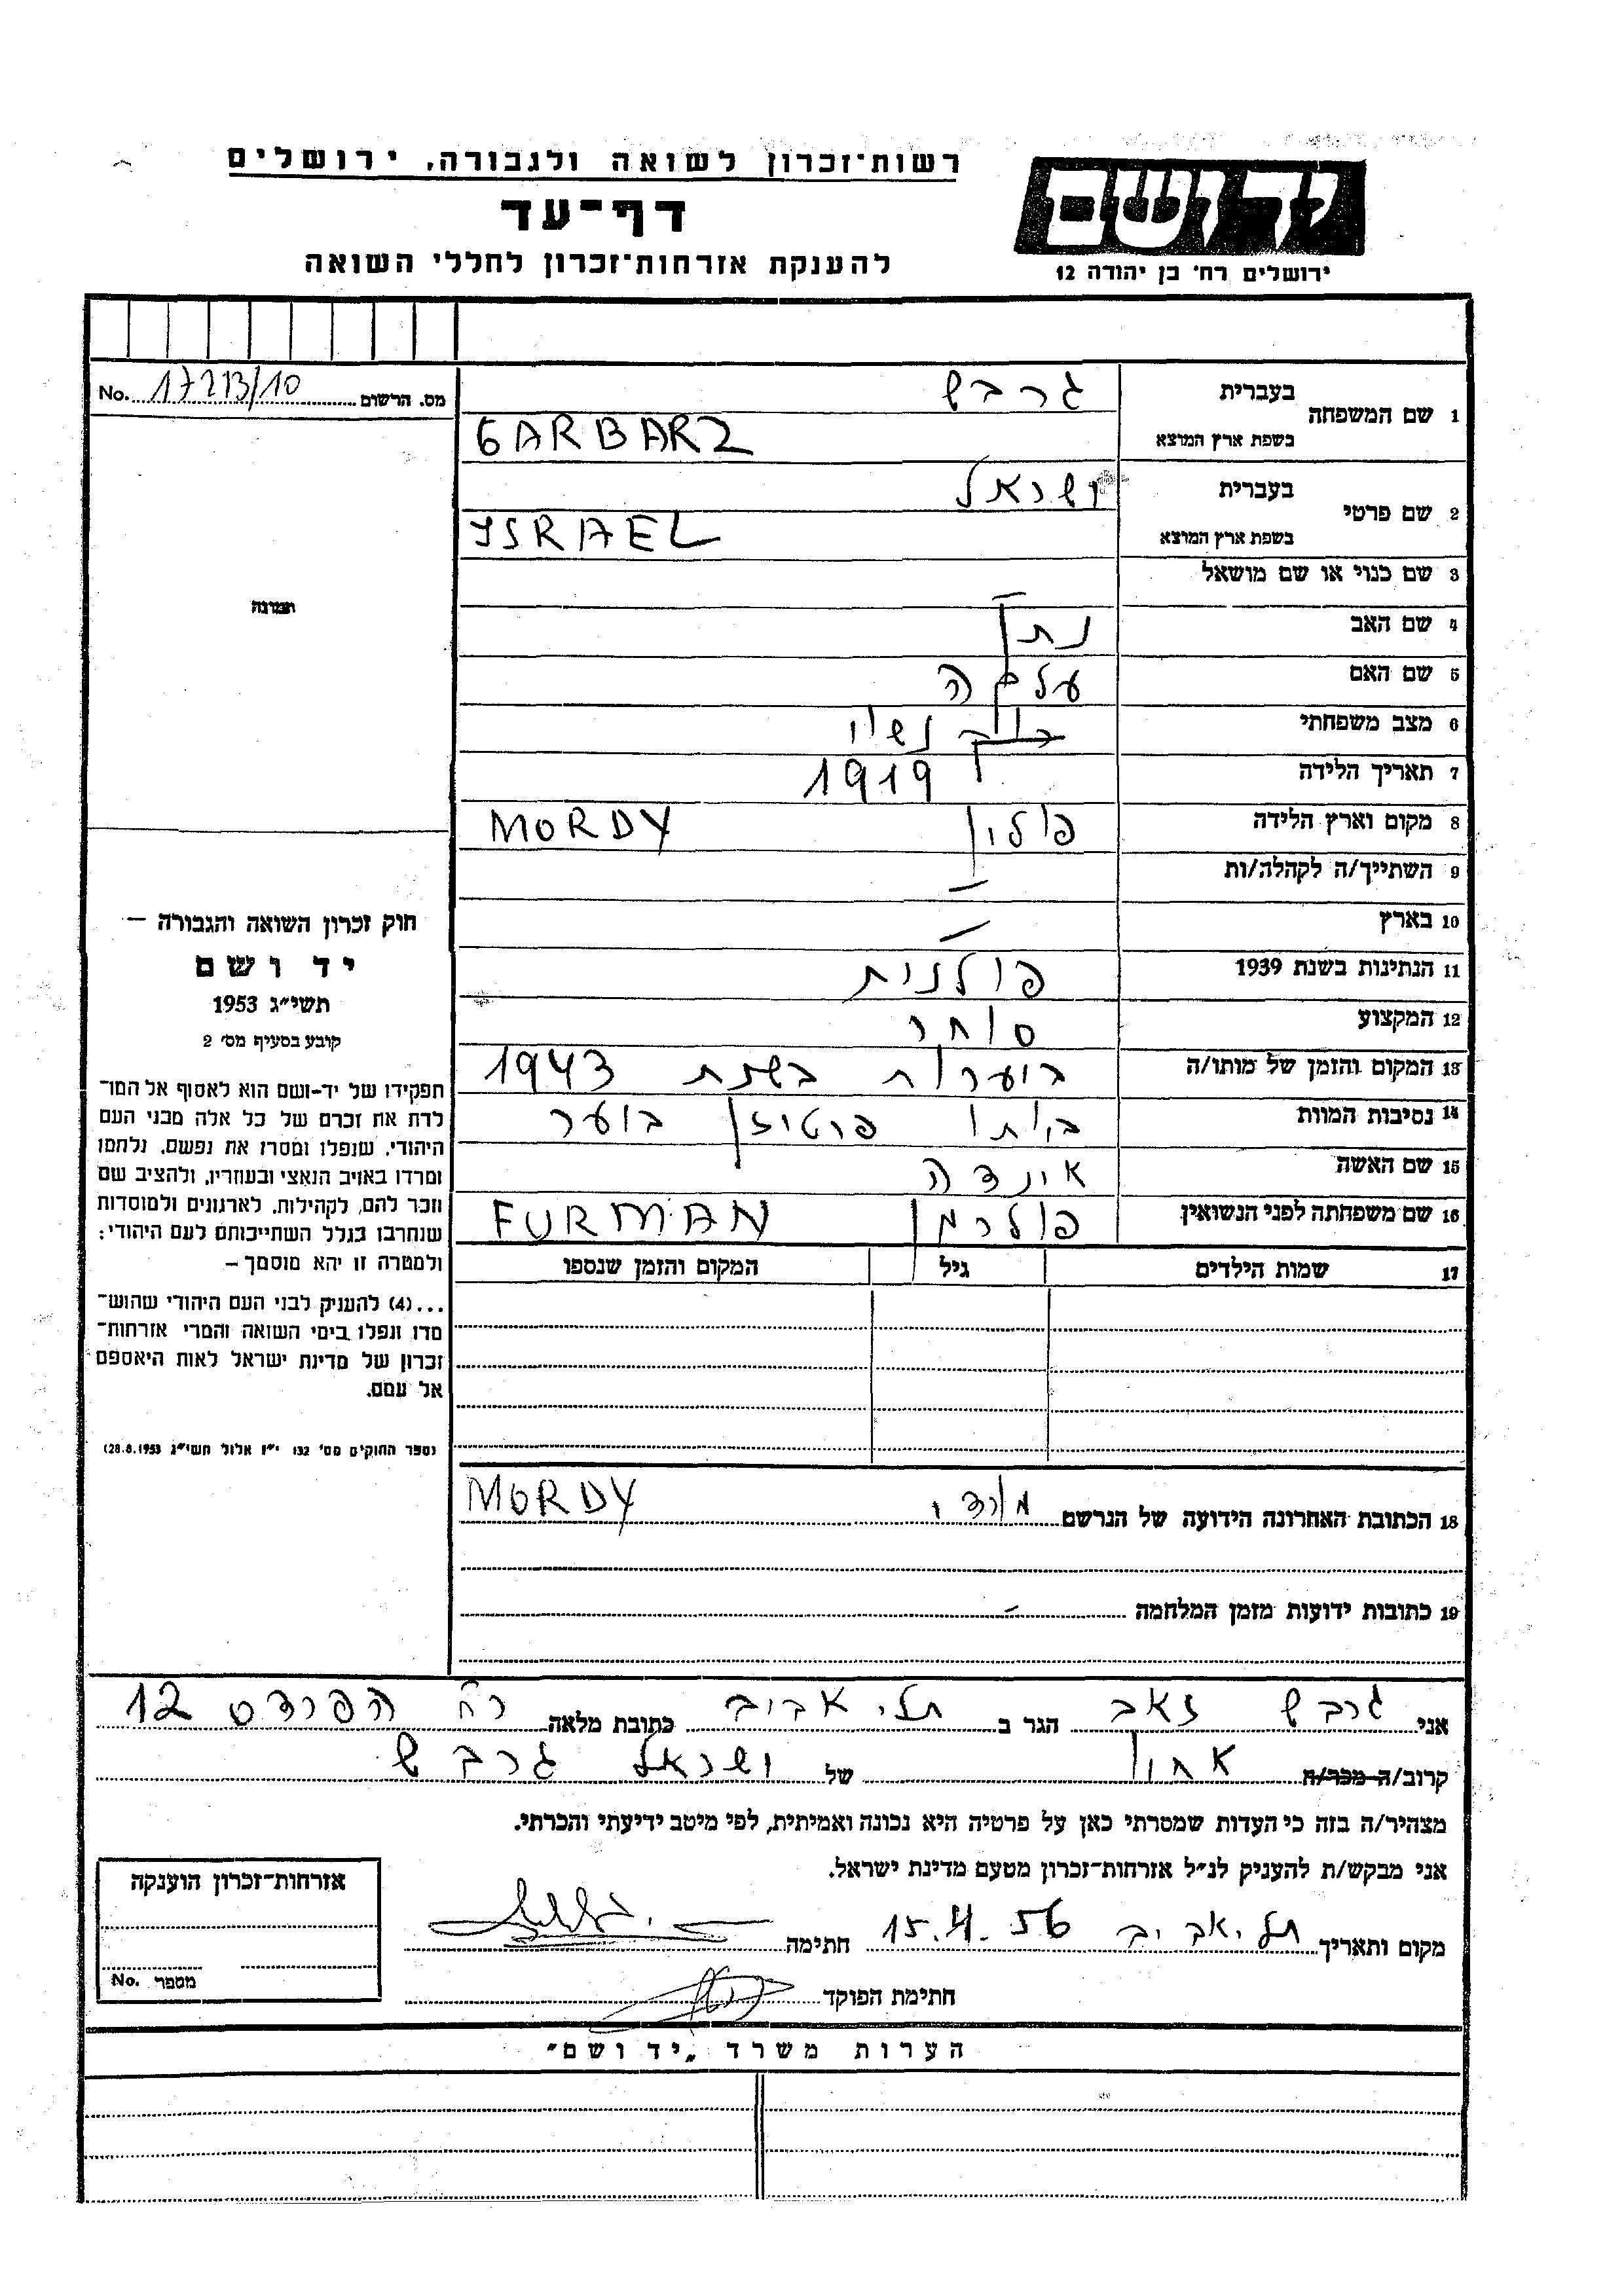 רשות־זכרון לשואה ולגבורה, ירושלים
דף־עד
להענקת אזרחות־זכרון לחללי השואה
יד ושם
ירושלים רח' בן יהודה 12
מס. הרשום 17213/10 No.
1 שם המשפחה
בעברית גרבש
בשפת ארץ המוצא GARBARZ
2 שם פרטי
בעברית ישראל
בשפת ארץ המוצא ISRAEL
3 שם כנוי או שם מושאל
4 שם האב נתן
5 שם האם
6 מצב משפחתי נשוי
7 תאריך הלידה 1919
8 מקום וארץ הלידה פולין MORDY
9 השתייך/ה לקהלה/ות —
10 בארץ —
11 הנתינות בשנת 1939 פולנית
12 המקצוע סוחר
13 המקום והזמן של מותו/ה ביערות בשנת 1943
14 נסיבות המוות בתור פרטיזן ביער
15 שם האשה
16 שם משפחתה לפני הנשואין FURMAN
17 שמות הילדים גיל המקום והזמן שנספו
תמונה
חוק זכרון השואה והגבורה —
יד ושם
תשי״ג 1953
קובע בסעיף מס׳ 2
תפקידו של יד־ושם הוא לאסוף אל המו־
לדת את זכרם של כל אלה מבני העם
היהודי, שנפלו ומסרו את נפשם, נלחמו
ומרדו באויב הנאצי ובעוזריו, ולהציב שם
וזכר להם, לקהילות, לארגונים ולמוסדות
שנחרבו בגלל השתייכותם לעם היהודי;
ולמטרה זו יהא מוסמך —
...(4) להעניק לבני העם היהודי שהוש־
מדו ונפלו בימי השואה והמרי אזרחות־
זכרון של מדינת ישראל לאות היאספם
אל עמם.
(ספר החוקים מס׳ 132 י״ז אלול תשי״ג 28.8.1953)
18 הכתובת האחרונה הידועה של הנרשם מורדי MORDY
19 כתובות ידועות מזמן המלחמה —
אני גרבש זאב הגר ב תל־אביב כתובת מלאה רח' הפרדס 12
קרוב/ה מכר/ה אחיו של ישראל גרבש
מצהיר/ה בזה כי העדות שמסרתי כאן על פרטיה היא נכונה ואמיתית, לפי מיטב ידיעתי והכרתי.
אני מבקש/ת להעניק לנ״ל אזרחות־זכרון מטעם מדינת ישראל.
מקום ותאריך תל־אביב 15.4.56 חתימה
חתימת הפוקד
אזרחות־זכרון הוענקה
מספר No.
הערות משרד „יד ושם״